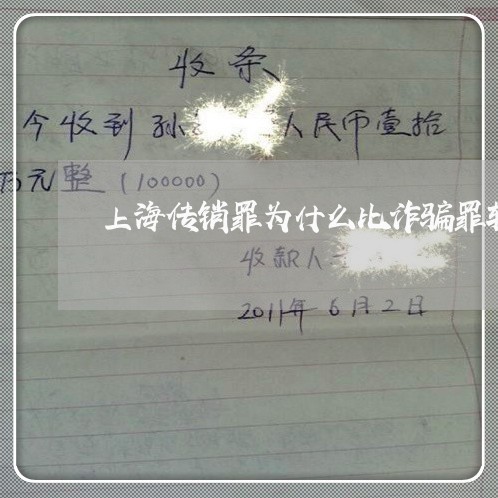 收条
今收到孙 人民币壹拾
万元整(100000)
上海传销罪为什么比诈骗罪
收款人
2011年6月2日